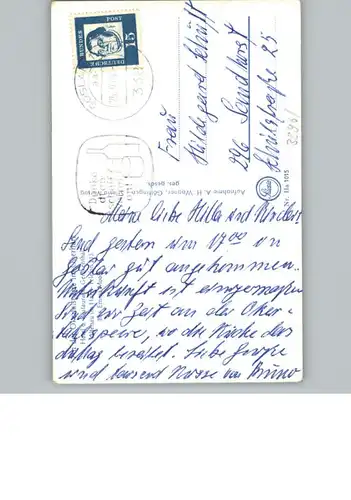 15
DEUTSCHE
BUNDES
POST
Frau
Hildegard Schütt
296 Sandhorst
Schulstraße 25
Aufnahme A. H. Wagner, Göttingen
ges. gesch.
Nr. Ha 1015
Meine liebe Hilla und Kinder!
Sind gestern um 17 00 in
Goslar gut angekommen.
Unterkunft ist einigermaßen
Sind zur Zeit an der Oker-
talsperre, wo die Küche das
Mittag bereitet. Liebe Grüße
und tausend Küsse von Bruno